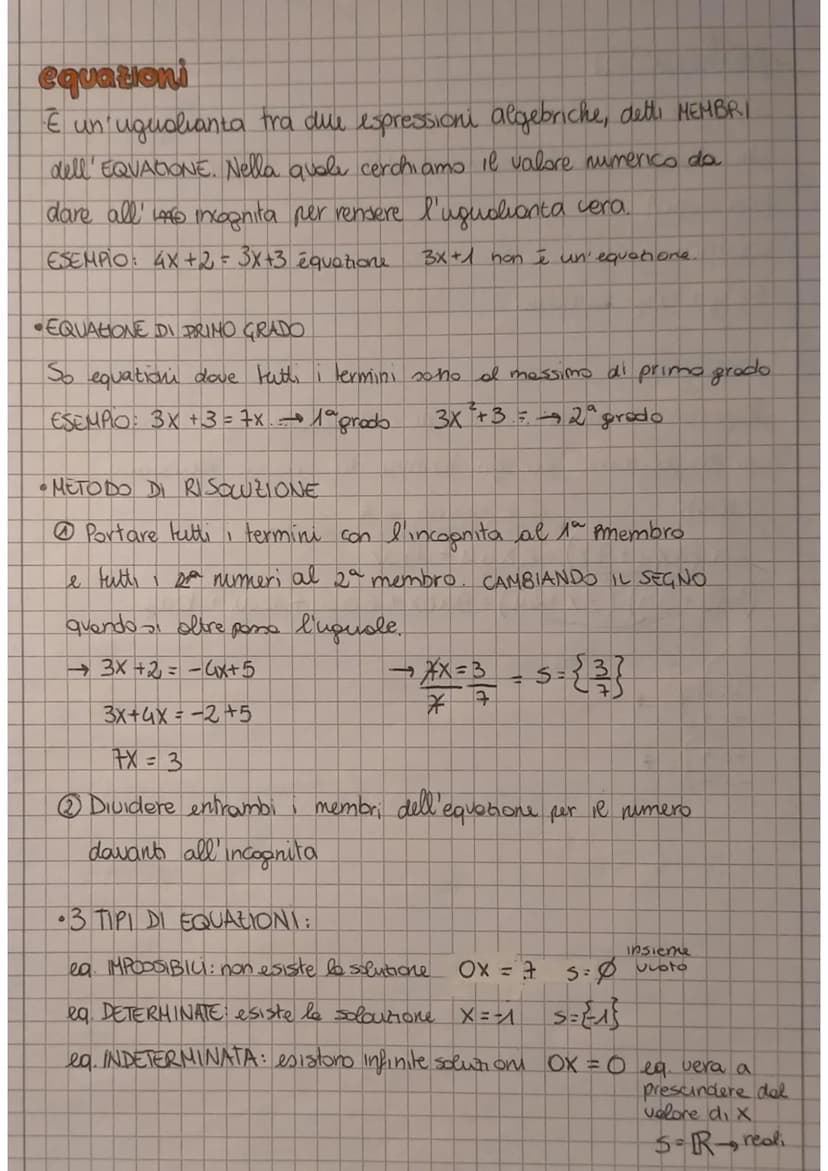 equazioni
È un'uguaglianza tra due espressioni algebriche, detti MEMBRI
dell'EQUAZIONE. Nella quale cerchiamo il valore numerico da
dare all' incognita per rendere l'uguaglianza vera.
ESEMPIO: 4x+2 = 3x+3 equazione 3x+1 non è un'equazione.
• EQUAZIONE DI PRIMO GRADO
So equazioni dove tutti i termini sono al massimo di primo grado
ESEMPIO: 3x +3 = 7x → 1ª grado 3x²+3 = → 2ª grado
• METODO DI RISOLUZIONE
① Portare tutti i termini con l'incognita al 1ª membro
e tutti i numeri al 2ª membro. CAMBIANDO IL SEGNO
quando si oltre passa l'uguale.
→ 3x +2 = -4x+5 → 7x = 3 / 7 7 = S = {3/7}
3x+4x = -2+5
7x = 3
② Dividere entrambi i membri dell'equazione per il numero
davanti all'incognita
• 3 TIPI DI EQUAZIONI:
eq. IMPOSSIBILI: non esiste la soluzione 0x = 7 S = ∅ insieme vuoto
eq. DETERMINATE: esiste la soluzione x = -1 S={-1}
eq. INDETERMINATA: esistono infinite soluzioni 0x = 0 eq. vera a
prescindere dal
valore di x
S = ℝ → reali